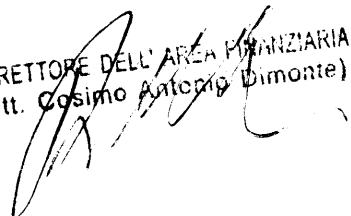 RETTORE DELL' AREA FINANZIARIA
tt. Cosimo Antonio Dimonte)